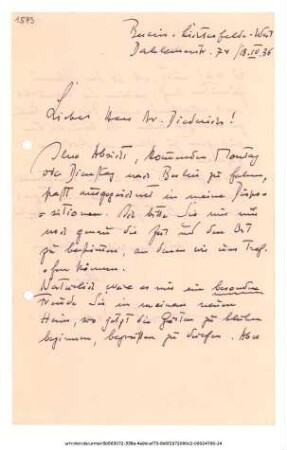 1583
Berlin-Lichterfelde-West
Dahlemerstr. 74 / 13.IV.36
Lieber Herr Dr. Diederichs!
Ihre Absicht, kommenden Montag
oder Dienstag nach Berlin zu fahren,
passt ausgezeichnet in meine Dispo-
sitionen. Ich bitte Sie mir nur
noch genau die Zeit und den Ort
zu bestimmen, an denen wir uns tref-
fen können.
Natürlich wäre es mir eine besondre
Freude Sie in meinem neuen
Heim, wo jetzt die Gärten zu blühen
beginnen, begrüßen zu dürfen. Aber